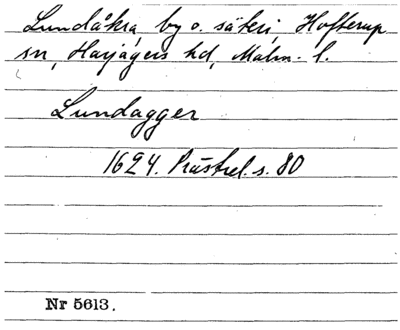 Lundåkra, by o. säteri, Hofterup
sn, Harjagers hd, Malm. l.
Lundagger
1624. Prästrel. s. 80
Nr 5613.